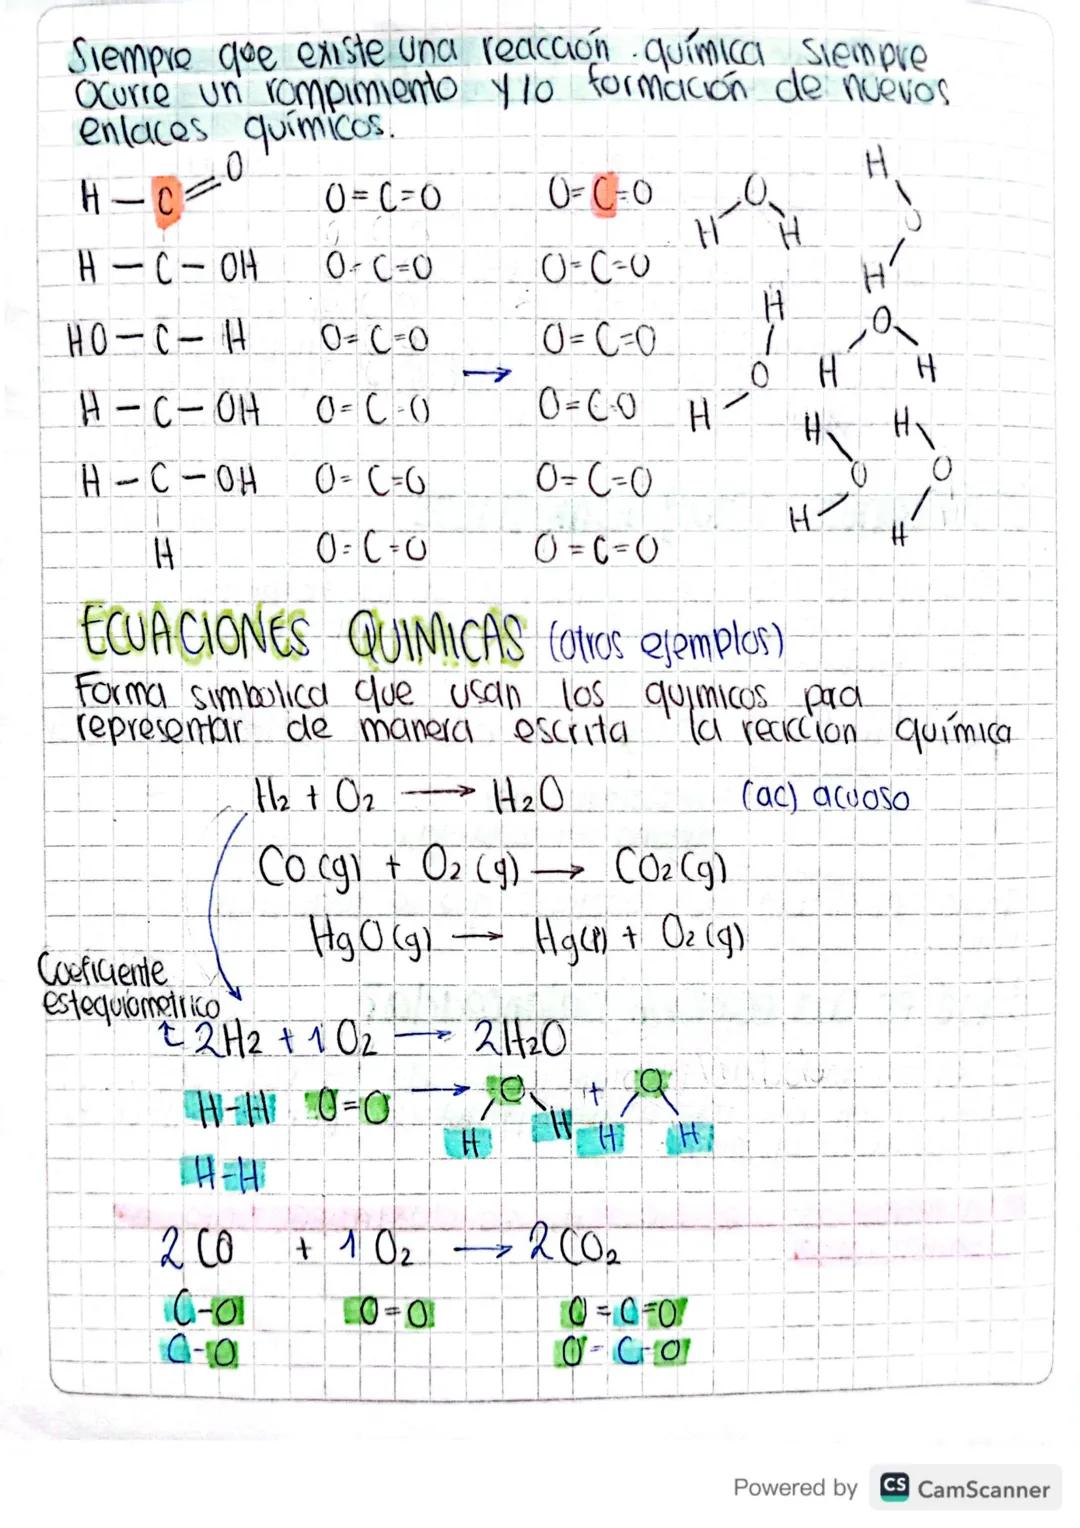 Siempre que existe una reacción química siempre
ocurre un rompimiento y/o formación de nuevos
enlaces químicos.
H — C = O   O = C = O   O = C = O   H O H   H
H — C — OH   O - C = O   O = C = O   O
HO — C — H   O = C = O   O = C = O   H   H
H — C — OH   O = C = O → O = C = O   O   H O H
H — C — OH   O = C = O   O = C = O   H   H O H   H O H
H   O = C = O   O = C = O
ECUACIONES QUIMICAS (otros ejemplos)
Forma simbolica que usan los quimicos para
representar de manera escrita la reaccion química
H2 + O2 → H2O   (ac) acuoso
Co (g) + O2 (g) → CO2 (g)
HgO (g) → Hg(l) + O2 (g)
Coeficiente
estequiometrico
2H2 + 1 O2 → 2H2O
H-H   O=O → O + O
H H H H
H-H
2 CO + 1 O2 → 2 CO2
C-O   O=O   O=C=O
C-O   O-C-O
Powered by CS CamScanner